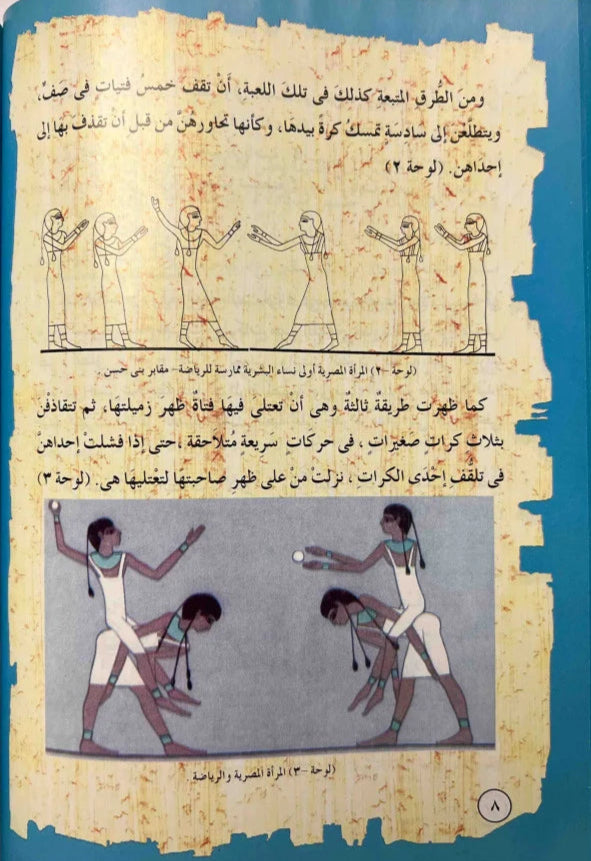 ومنَ الطُّرقِ المتبعةِ كذلكَ فى تلكَ اللعبةِ، أَنْ تقفَ خمسُ فتياتٍ فى صَفٍّ،
ويتطلّعن إلى سَادسَةٍ تمسكُ كرةً بيدهَا، وكأنها تحاورهنَّ من قبل أنْ تقذفَ بهَا إلى
إحدَاهن. (لوحة ٢)
(لوحة -٢) المرأة المصرية أولى نساء البشرية ممارسة للرياضة- مقابر بنى حسن .
كما ظهرت طريقةٌ ثالثةٌ وهى أنْ تعتلى فيهَا فتاةٌ ظهرَ زميلتهَا، ثم تتقاذفْنَ
بثلاث كراتٍ صَغيرَاتٍ ، فى حركَاتٍ سَريعةٍ مُتلاحقة ،حتى إذَا فشلتْ إحداهنَّ
فى تلقُّفِ إحْدَى الكرات ، نزلتْ منْ على ظهرِ صَاحبتهَا لتَعْتليهَا هى. (لوحة ٣)
(لوحة -٣) المرأة المصرية والرياضة .
٨